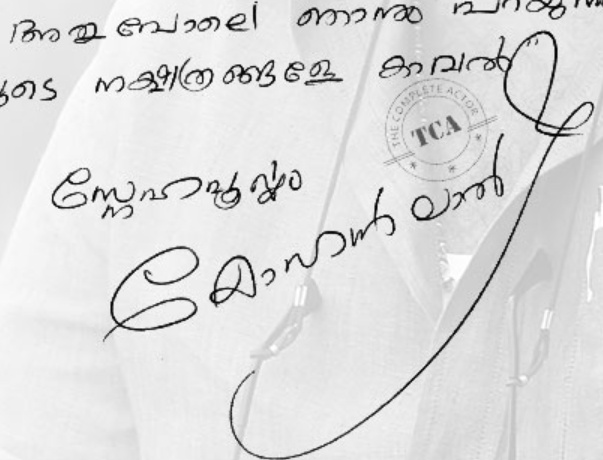 അമ്മ പോലെ ഞാനും പറയു
നക്ഷത്രങ്ങളേ കാവൽ
THE COMPLETE ACTOR
TCA
സ്നേഹപൂർവ്വം
മോഹൻ ലാൽ